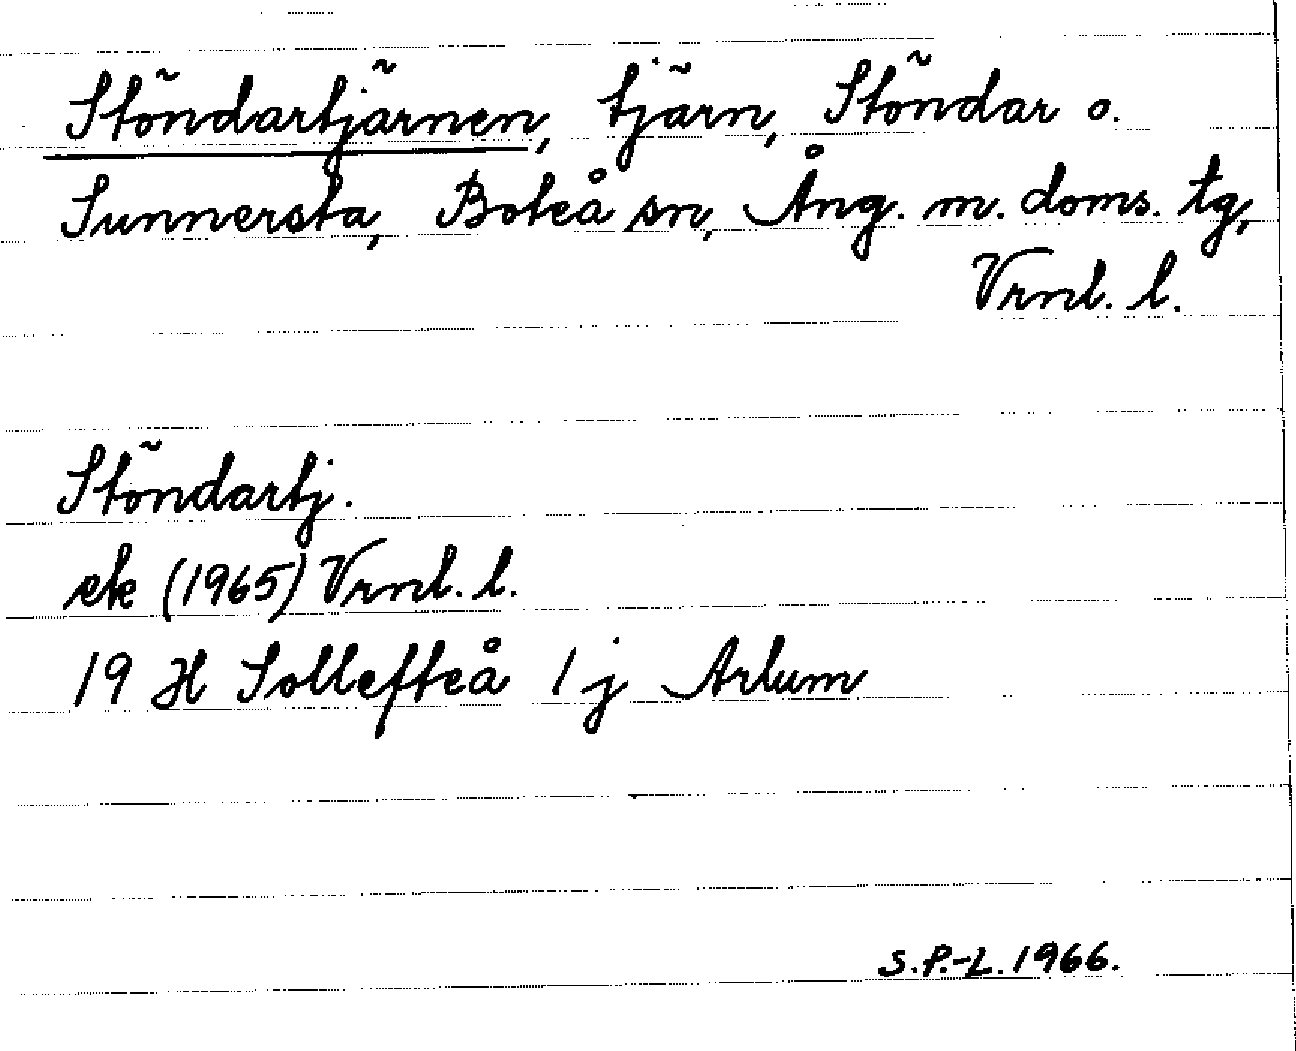 Stöndartjärnen, tjärn, Stöndar o.
Sunnersta, Boteå sn, Ång. m. doms. tg,
Vrnl. l.
Stöndartj.
ek (1965) Vrnl. l.
19 H Sollefteå 1 j Arlum
S.P.-L. 1966.